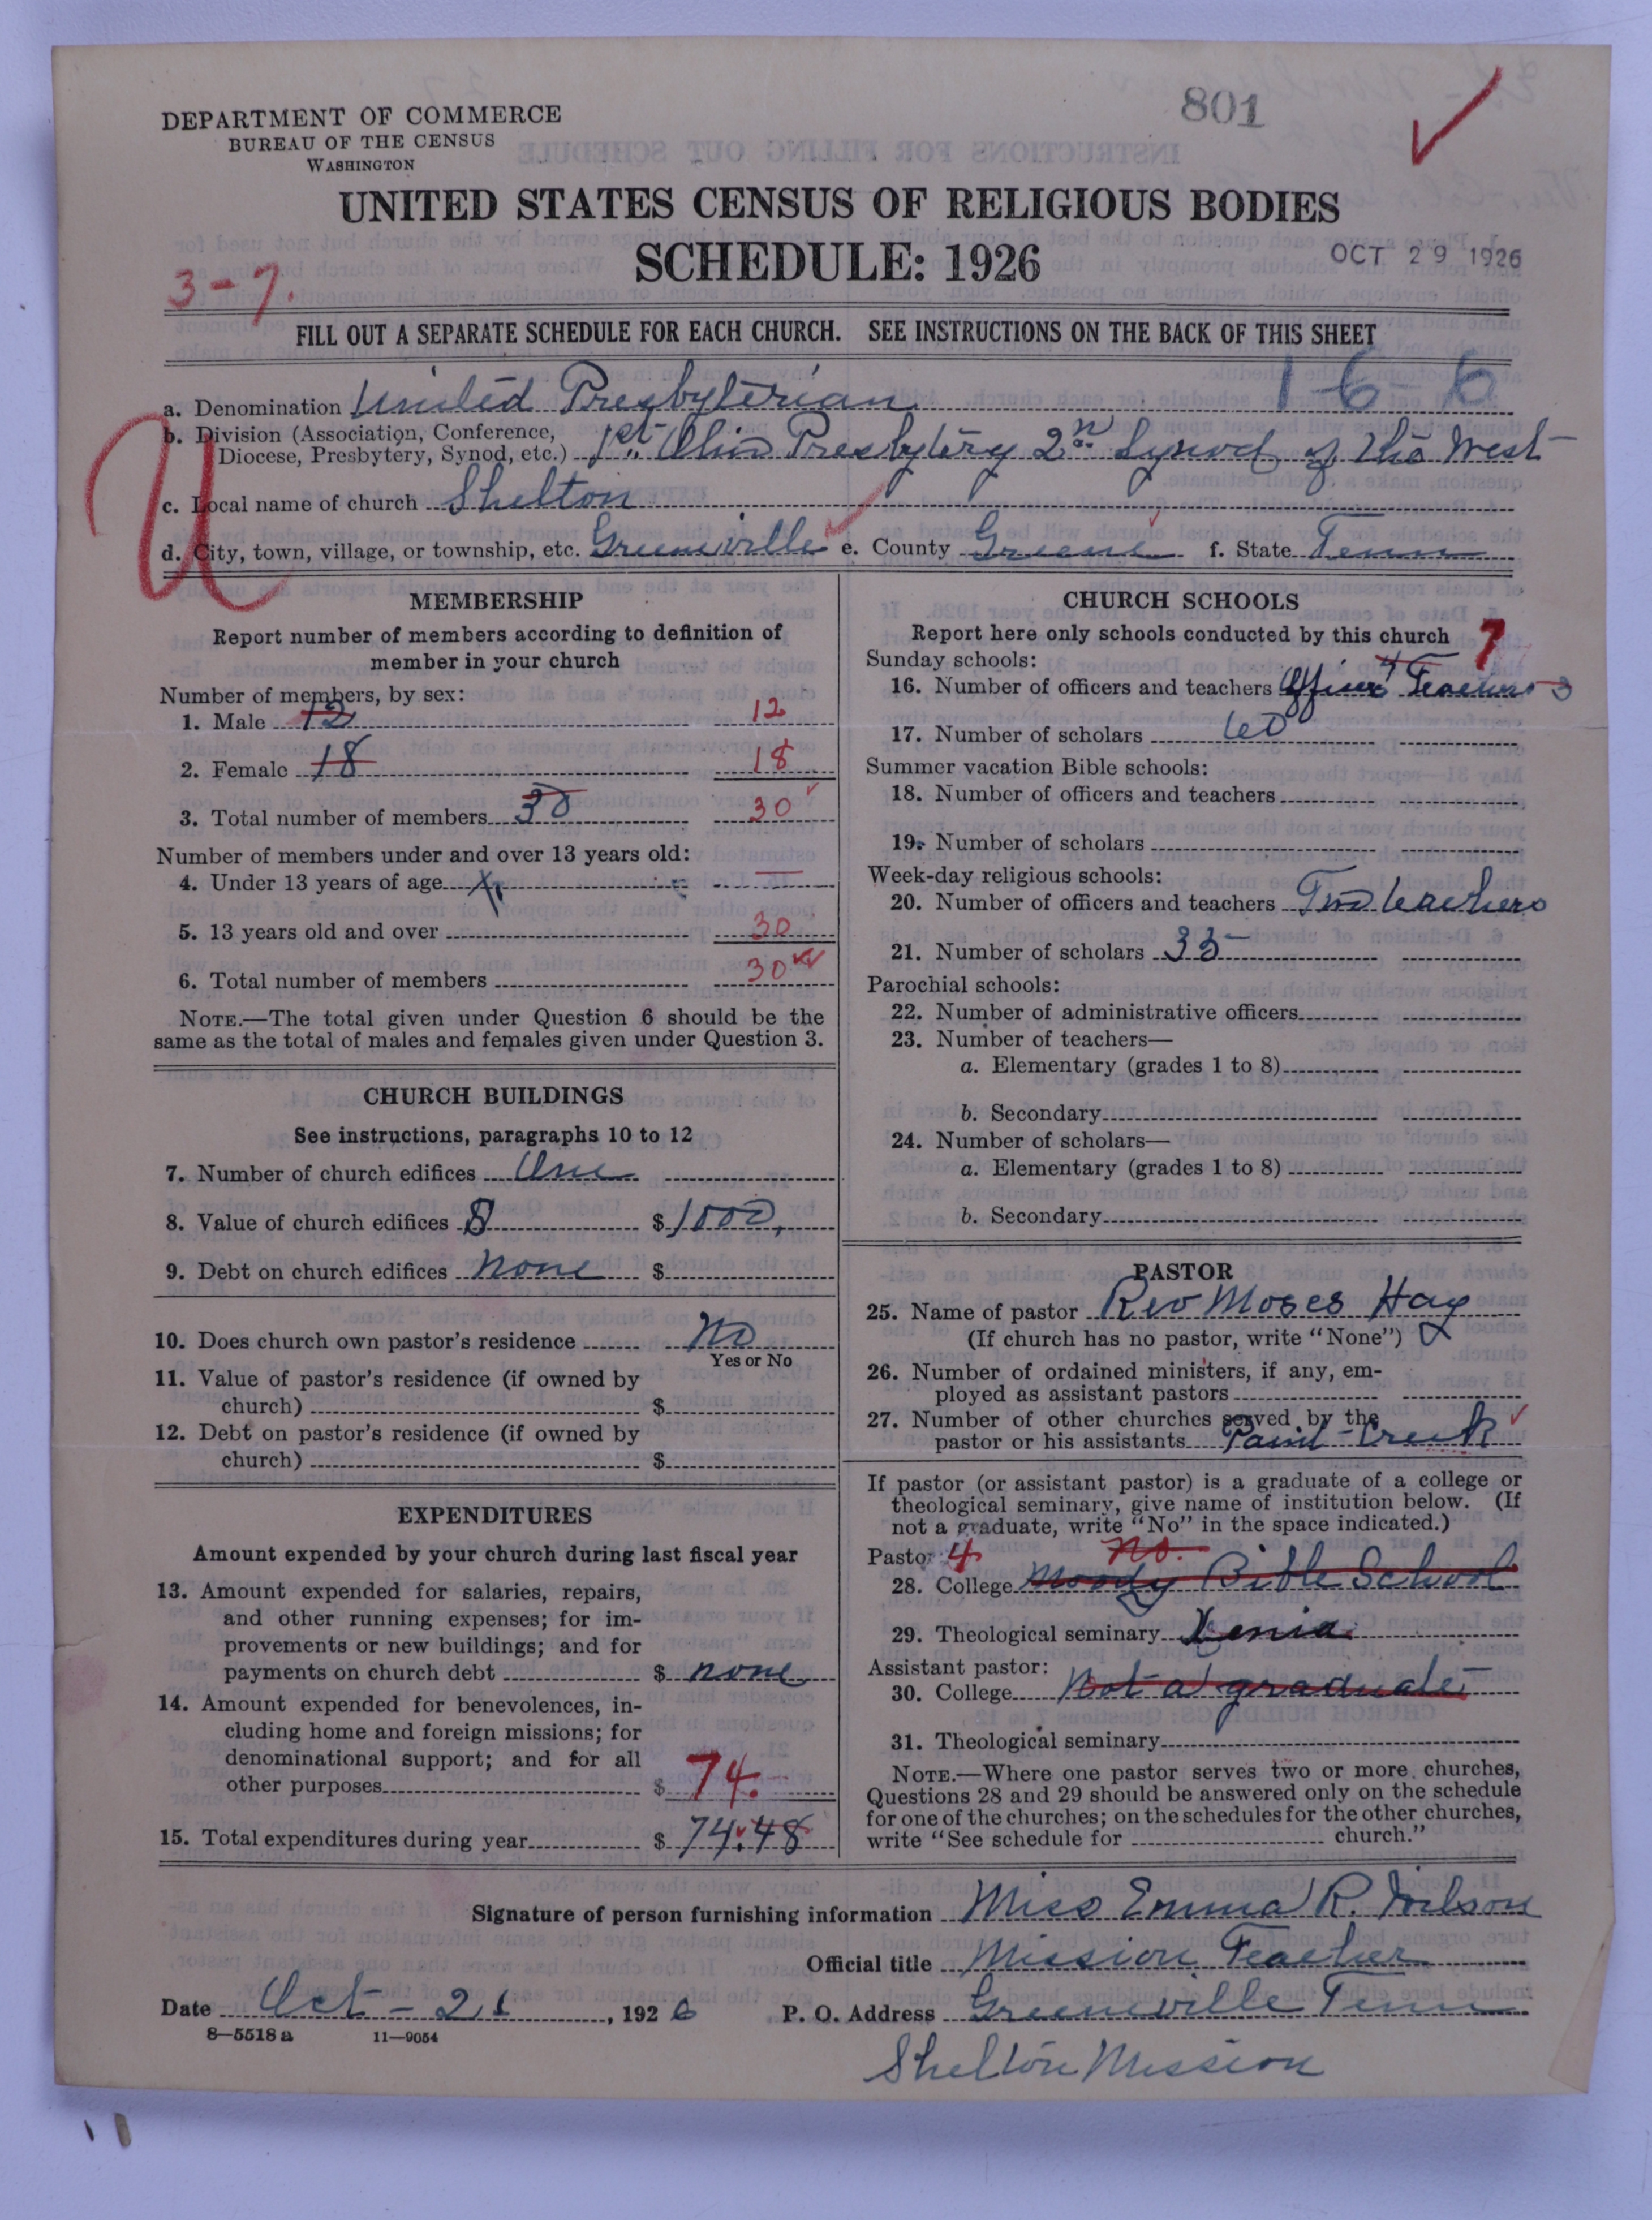 801
DEPARTMENT OF COMMERCE
BUREAU OF THE CENSUS
WASHINGTON
UNITED STATES CENSUS OF RELIGIOUS BODIES
SCHEDULE: 1926
OCT 29 1926
3-7.
FILL OUT A SEPARATE SCHEDULE FOR EACH CHURCH. SEE INSTRUCTIONS ON THE BACK OF THIS SHEET
a. Denomination United Presbyterian 16-6
b. Division (Association, Conference,
Diocese, Presbytery, Synod, etc.) 1st Ohio Presbytery 2nd Synod of the West
U
c. Local name of church Shelton
d. City, town, village, or township, etc. Greeneville e. County Greene f. State Tenn
MEMBERSHIP
Report number of members according to definition of
member in your church
Number of members, by sex:
1. Male 12 12
2. Female 18 18
3. Total number of members 30 30
Number of members under and over 13 years old:
4. Under 13 years of age X
5. 13 years old and over 30
6. Total number of members 30
NOTE.—The total given under Question 6 should be the
same as the total of males and females given under Question 3.
CHURCH BUILDINGS
See instructions, paragraphs 10 to 12
7. Number of church edifices One
8. Value of church edifices $ 1000,
9. Debt on church edifices None $
10. Does church own pastor's residence No
Yes or No
11. Value of pastor's residence (if owned by
church) $
12. Debt on pastor's residence (if owned by
church) $
EXPENDITURES
Amount expended by your church during last fiscal year
13. Amount expended for salaries, repairs,
and other running expenses; for im-
provements or new buildings; and for
payments on church debt $ none
14. Amount expended for benevolences, in-
cluding home and foreign missions; for
denominational support; and for all
other purposes $ 74.
15. Total expenditures during year $ 74.48
CHURCH SCHOOLS
Report here only schools conducted by this church 7
Sunday schools:
16. Number of officers and teachers Officers 4 Teachers 3
17. Number of scholars 60
Summer vacation Bible schools:
18. Number of officers and teachers
19. Number of scholars
Week-day religious schools:
20. Number of officers and teachers Two teachers
21. Number of scholars 35
Parochial schools:
22. Number of administrative officers
23. Number of teachers—
a. Elementary (grades 1 to 8)
b. Secondary
24. Number of scholars—
a. Elementary (grades 1 to 8)
b. Secondary
PASTOR
25. Name of pastor Rev Moses Hay
(If church has no pastor, write "None")
26. Number of ordained ministers, if any, em-
ployed as assistant pastors
27. Number of other churches served by the
pastor or his assistants Paint Creek
If pastor (or assistant pastor) is a graduate of a college or
theological seminary, give name of institution below. (If
not a graduate, write "No" in the space indicated.)
Pastor: 4 No.
28. College Moody Bible School
29. Theological seminary Xenia
Assistant pastor:
30. College Not a graduate
31. Theological seminary
NOTE.—Where one pastor serves two or more churches,
Questions 28 and 29 should be answered only on the schedule
for one of the churches; on the schedules for the other churches,
write "See schedule for church."
Signature of person furnishing information Miss Emma R. Wilson
Official title Mission Teacher
Date Oct - 21, 1926 P. O. Address Greeneville Tenn
8—5518 a 11—9054
Shelton Mission